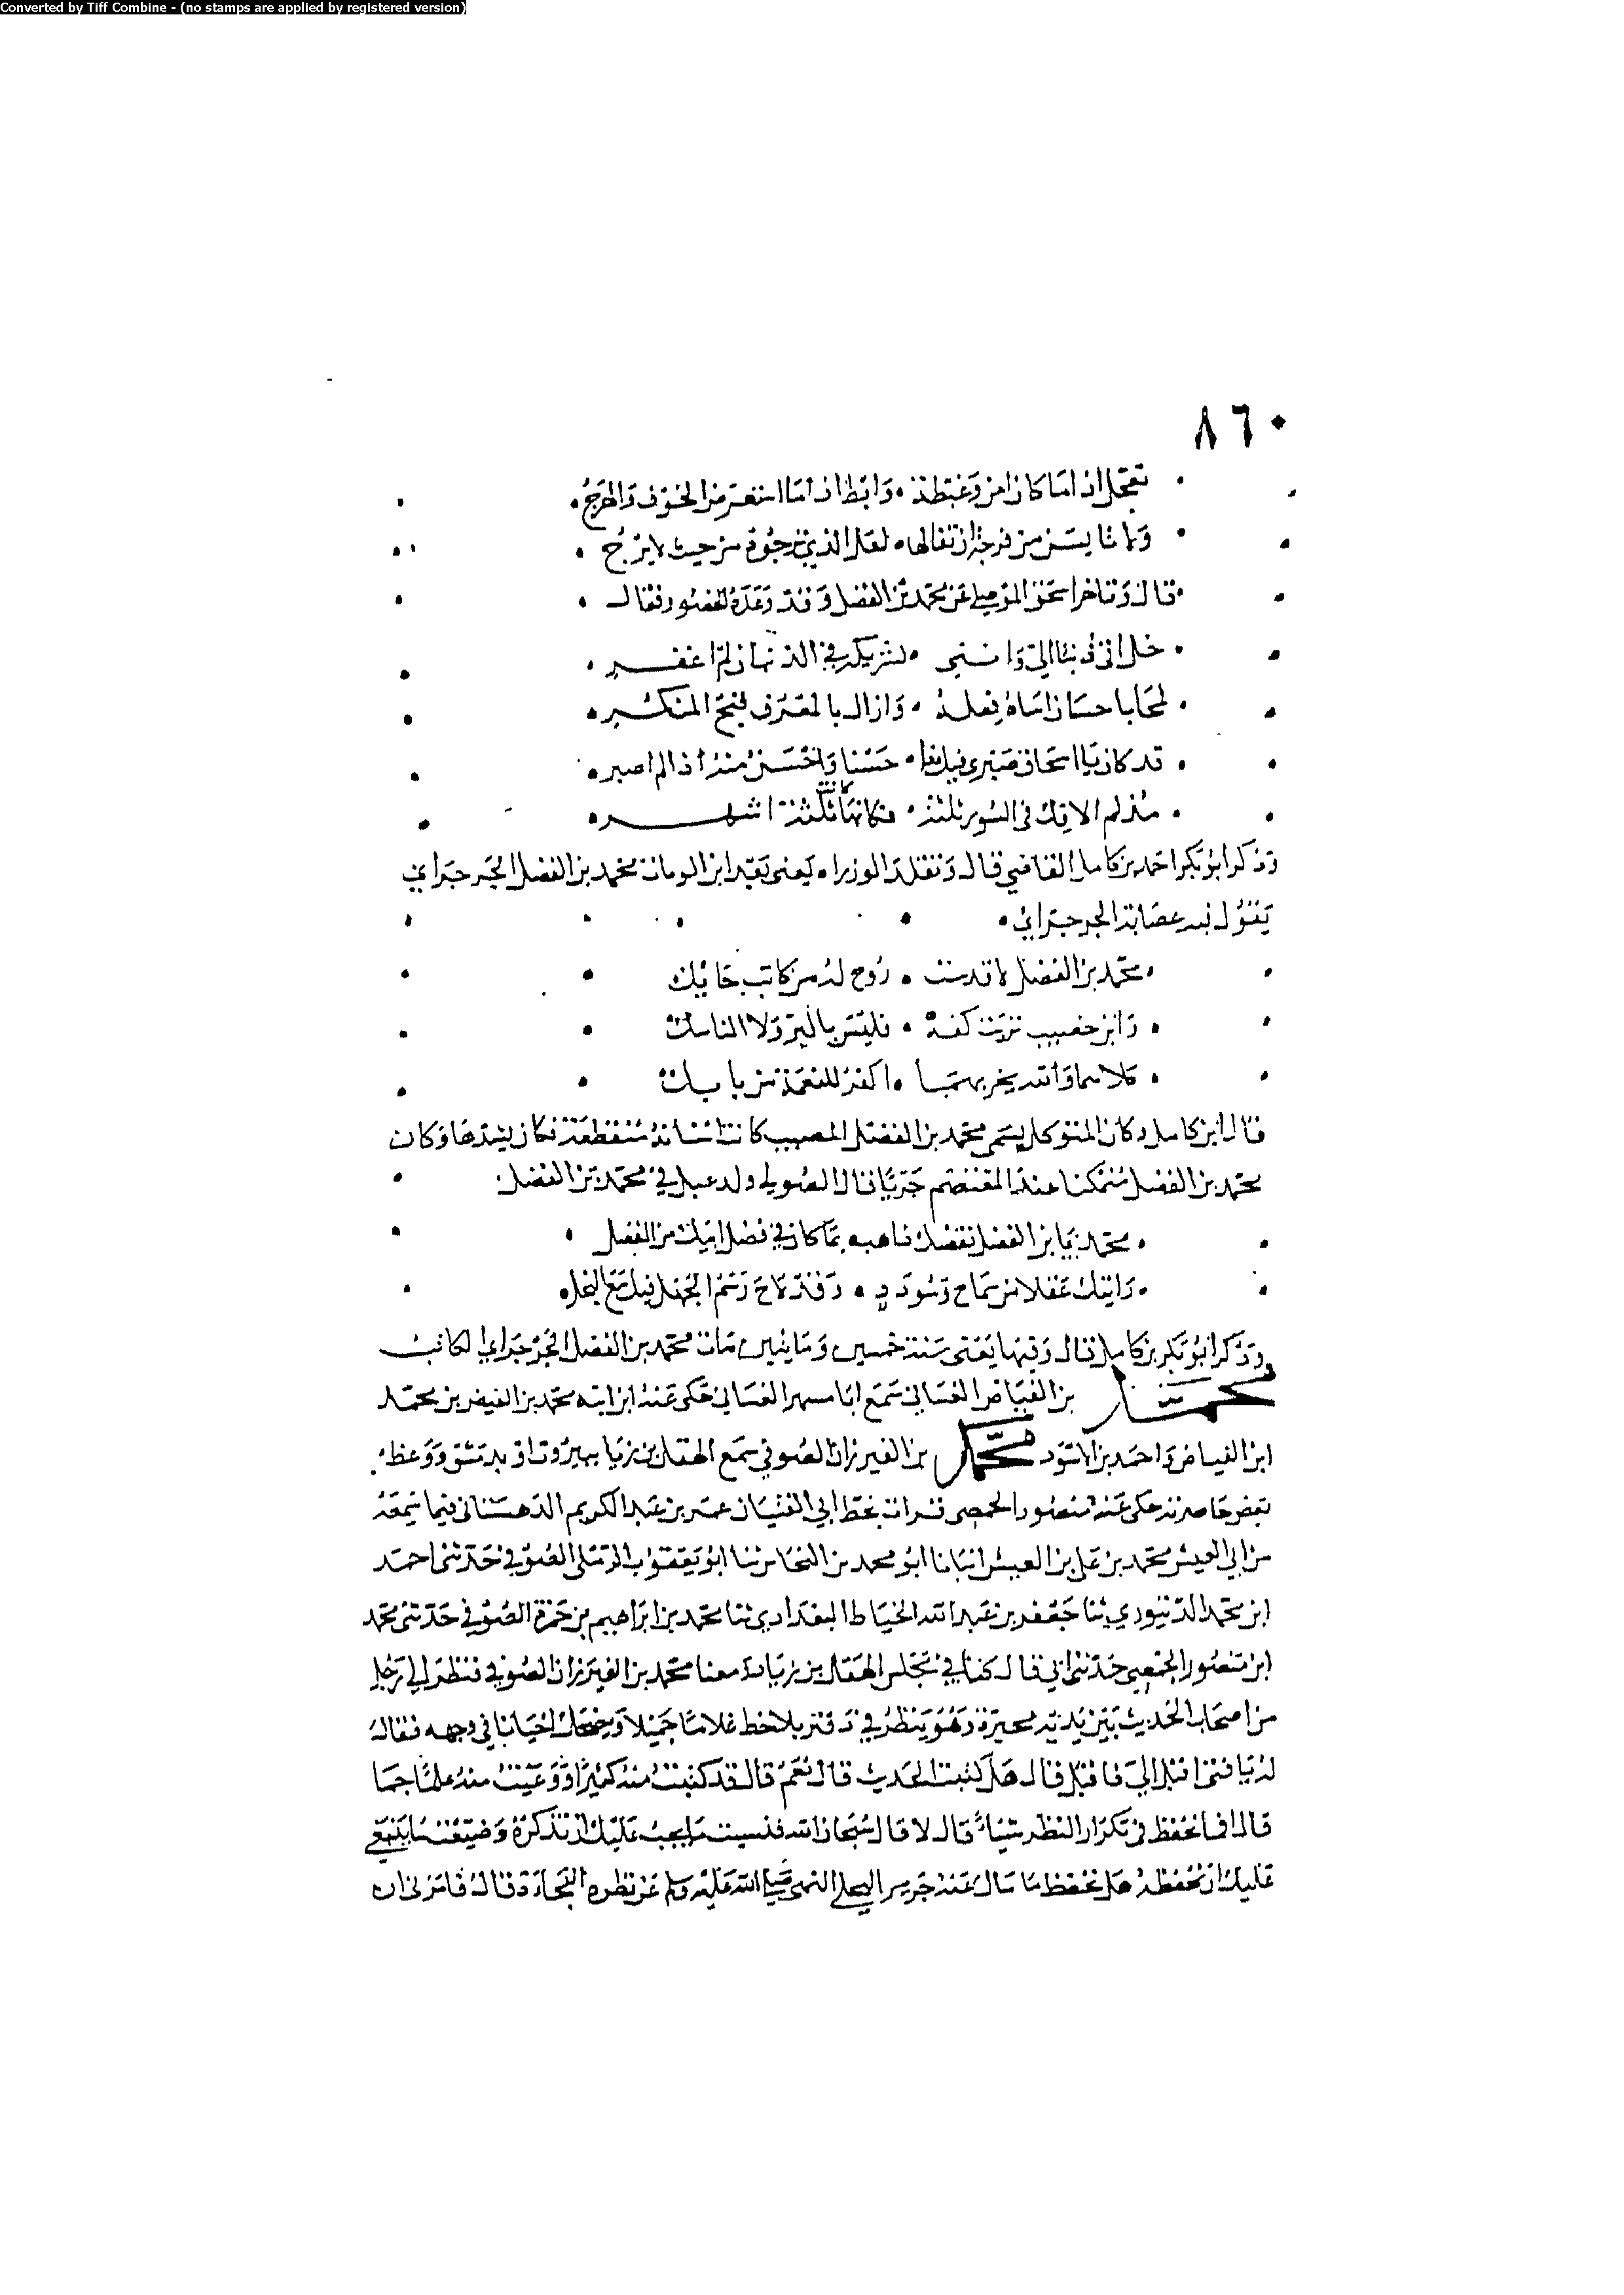 Converted by Tiff Combine - (no stamps are applied by registered version)
٨٦٠
تعجل اذا ما كان امن وغبطة وابطا اذا ما استعرض الخوف والهرج
ولا تيا يسن من فرجة ان تنالها لعل الذي ترجوه من حيث لا يرجُ
قال وتاخر اسحق الموصلي عن محمد بن الفضل وقد وعده للعشور فقال
خل اتى ذنبا الي وانني لشريكه في الذنب ان لم اغفر
لمحا باحسان اساة فعله وازال بالمعترف قبح المنكر
قد كان يا اسحاق صبري قبلها حسنا واحسن منه اذ لم اصبر
مذ لم الاقك في السرور ثلثة فكانها كانت ثلثة اشهر
وذكر ابو بكر احمد بن كامل القاضي قال وتقلد الوزراه يعنى بعد ابن الزيات محمد بن الفضل الجرجراي
يقول فيه عصابة الجرجراي
محمد بن الفضل لا قدست روح له من كاتب حايك
وابن خصيب تربت كفه فليس بالبر ولا الناسك
كلاهما والله يخزيهما اكفر للنعمة من بابك
قال ابن كامل وكان المتوكل يسمى محمد بن الفضل المصبب كانت اسنانه منقطعة فكان يشدها وكان
محمد بن الفضل متمكنا عند المعتصم جريا قال الصولي ولدعبل في محمد بن الفضل
محمد يا بن الفضل بما كان في فضل ابيك من الفضل
رايتك غفلا من سماح وسودد وقد لاح وسم الجهل فيك مع البخل
وذكر ابو بكر بن كامل قال وفيها يعنى سنة خمسين وماتين مات محمد بن الفضل الجرجراي الكاتب
محمد بن الفياض الغساني سمع ابا مسهر الغساني حكى عنه ابن ابنه محمد بن الفيض بن محمد
ابن الفياض واحمد بن الاسود محمد بن الفيرزان الصوفي سمع الهقل بن زياد ببيروت او بدمشق ووعظ
بعض حاضرته حكى عنه منصور الحمصي قرات بخط ابي الفتيان عمر بن عبد الكريم الدهستاني فيما سمعه
من ابي العيش محمد بن علي بن العيش انبانا ابو محمد بن النحاس ثنا ابو يعقوب الرملي الصوفي حدثني احمد
ابن محمد الدينوري ثنا جعفر بن عبد الله الخياط البغدادي ثنا محمد بن ابراهيم بن حمزة الصوفي حدثني محمد
ابن منصور الحمصي حدثني ابي قال كنا في مجلس الهقل بن زياد معنا محمد بن الفيرزان الصوفي فنظر الي رجل
من اصحاب الحديث بين يديه محبرة وهو ينظر في دفتر يلاحظ غلاما جميلا ويضحك احيانا في وجهه فقال
له يا فتى اقبل الي فاقبل قال هل كتبت الحديث قال نعم قال قد كتبت منه كثيرا ووعيت منه علما جما
قال افما تحفظ في تكرار النظر شيا قال لا قال سبحان الله فنسيت ما يجب عليك ان تذكره وضيعت ما ينبغي
عليك ان تحفظه هل تحفظ ما سال عنه جرير البجلي النبي صلى الله عليه وسلم عن نظره الفجاءة قال فامرني ان